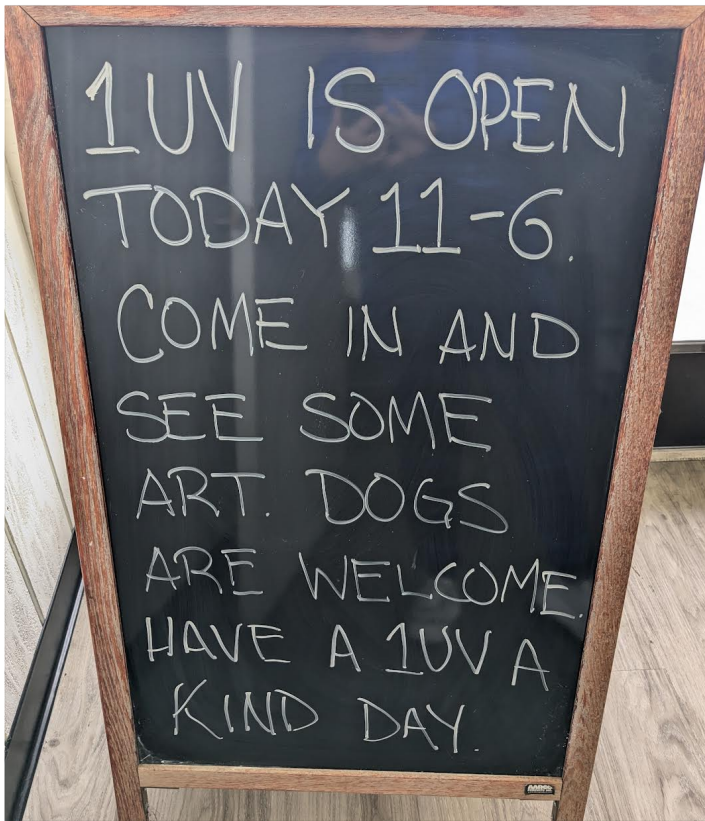 1UV IS OPEN
TODAY 11-6.
COME IN AND
SEE SOME
ART. DOGS
ARE WELCOME.
HAVE A 1UV A
KIND DAY.
AARCO